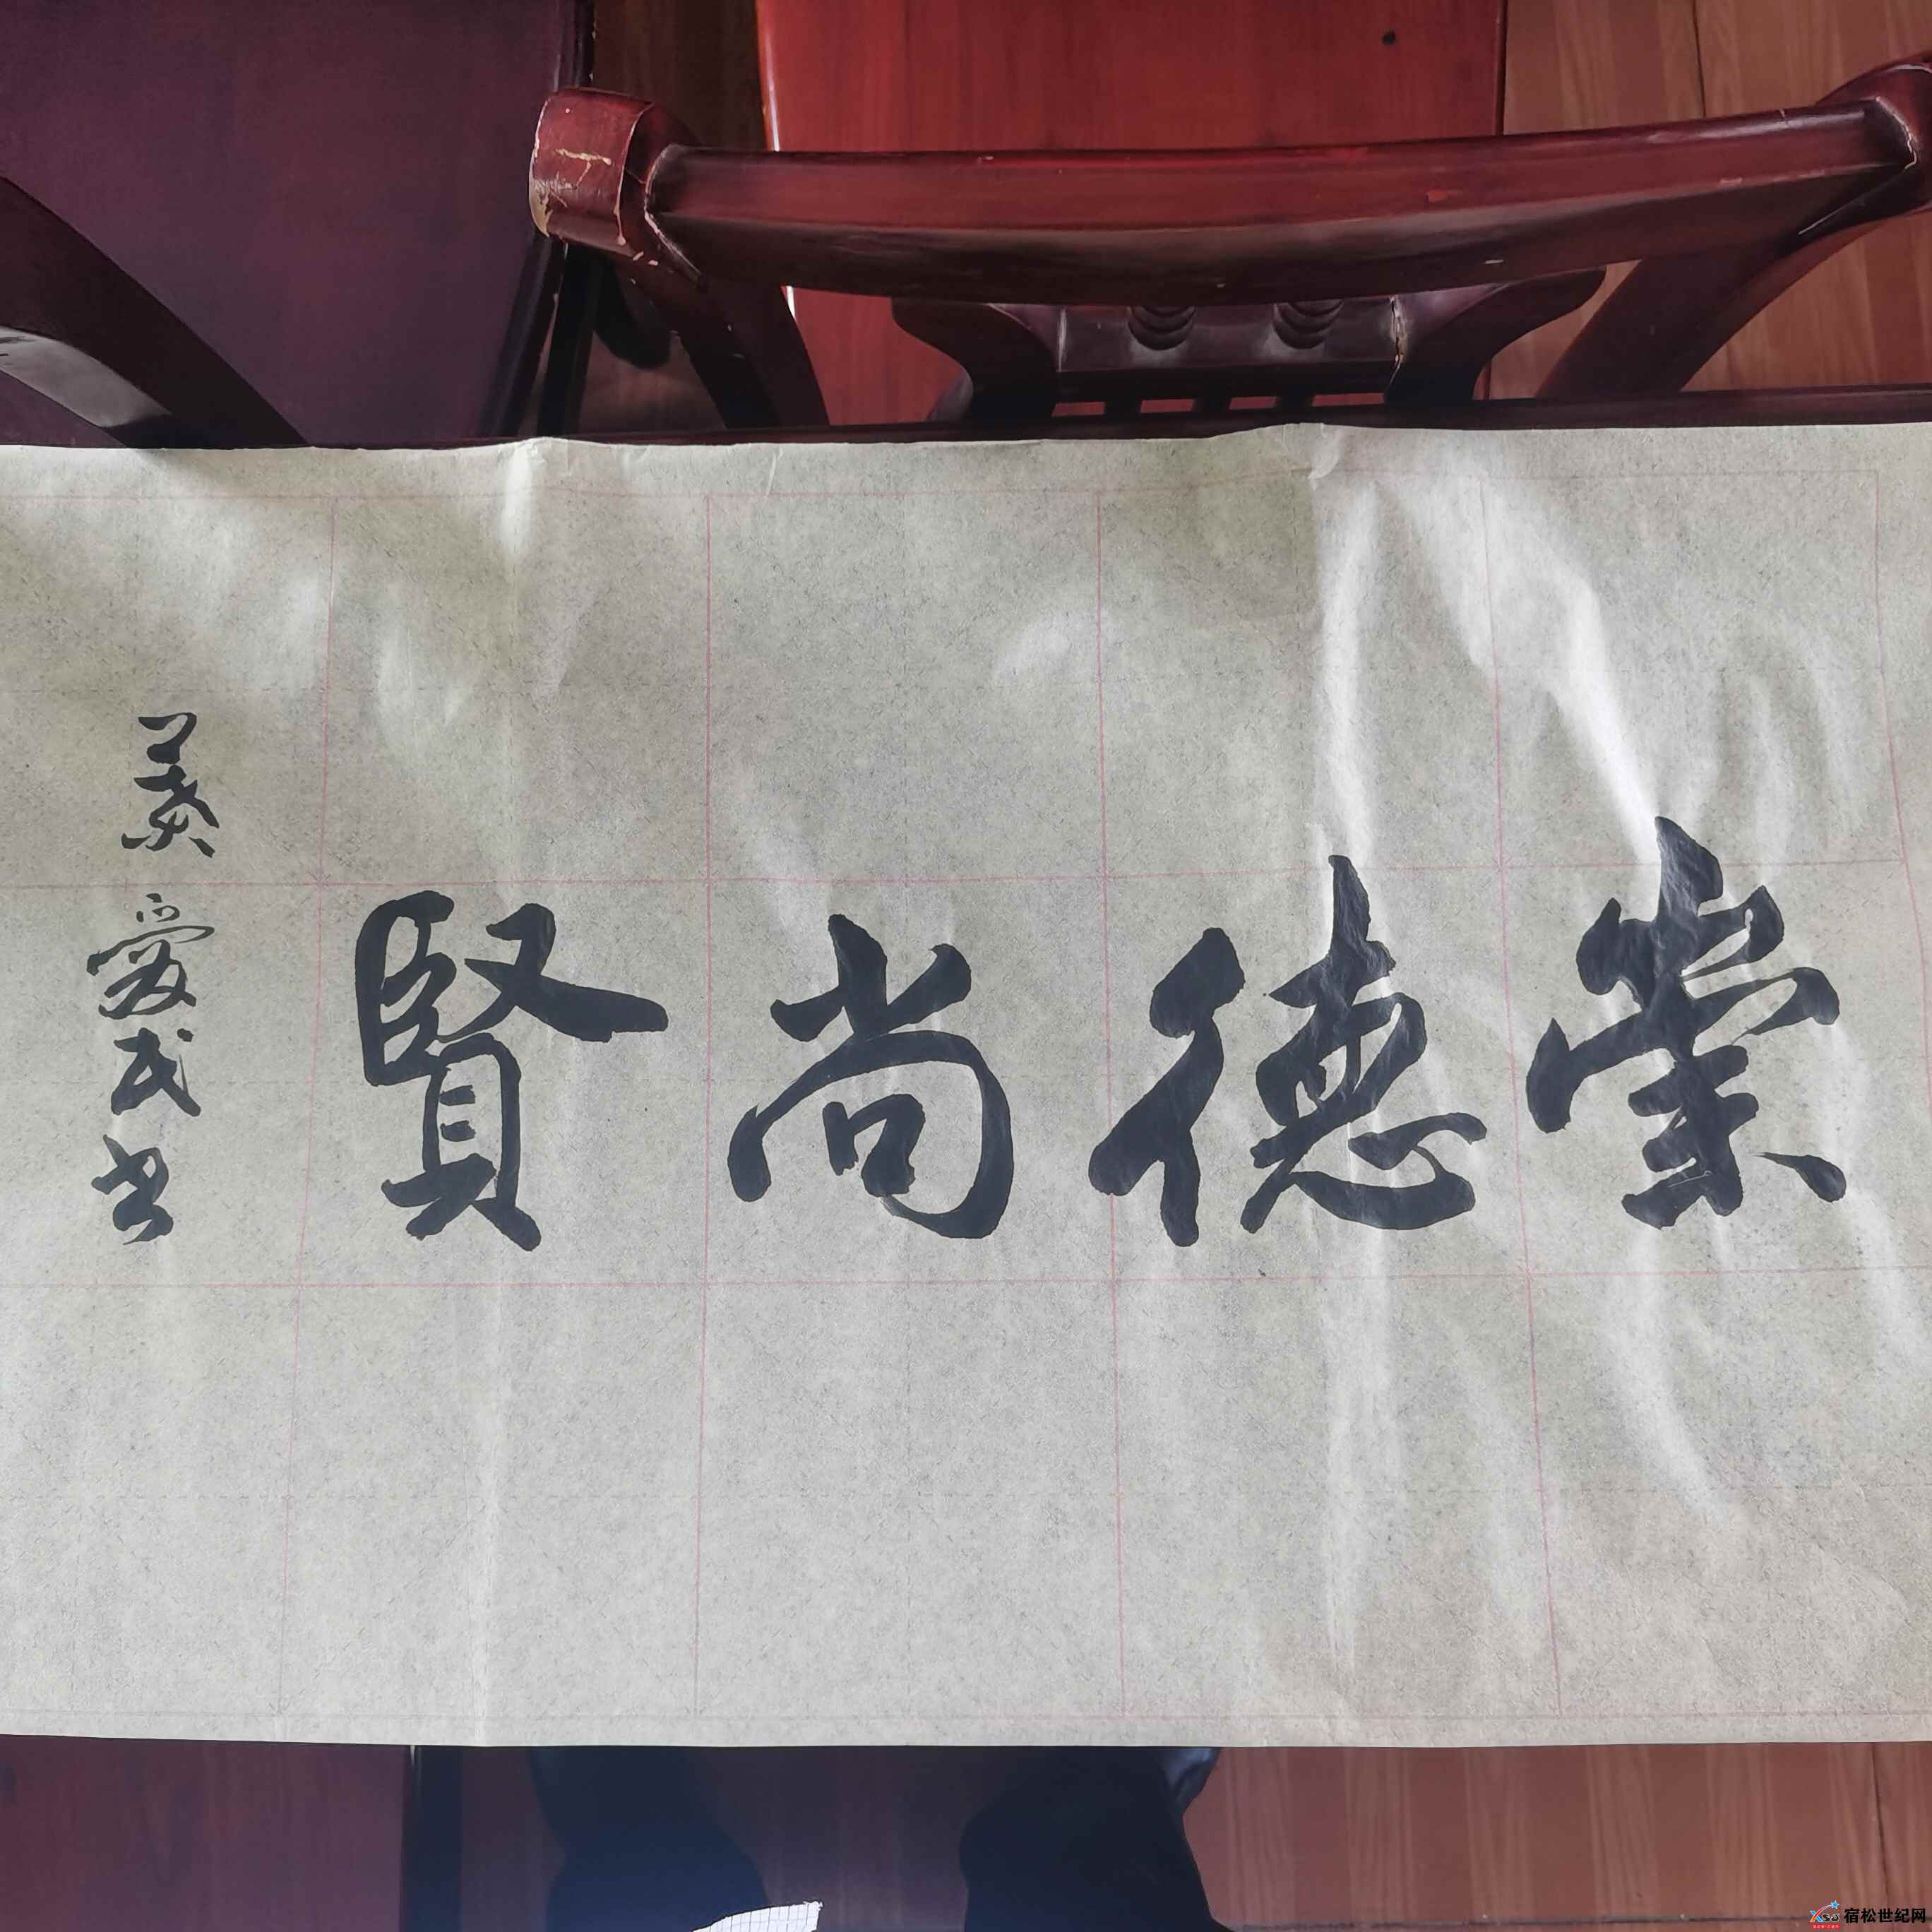 崇德尚賢
爱民书
宿松世纪网